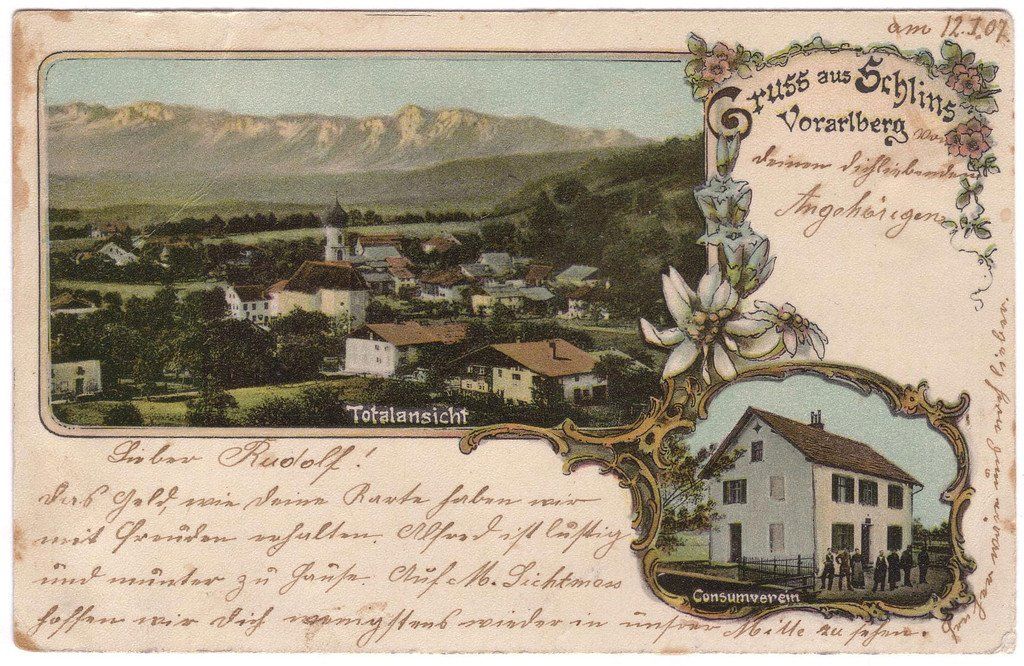 am 12.I.07.
Gruss aus Schlins
Vorarlberg
von
deinen dichliebenden
Angehörigen
Totalansicht
Consumverein
Lieber Rudolf!
das Geld, wie deine Karte haben wir
mit Freuden erhalten. Alfred ist lustig
und munter zu Hause. Auf M. Lichtmess
hoffen wir dich wenigstens wieder in unsrer Mitte zu sehen.